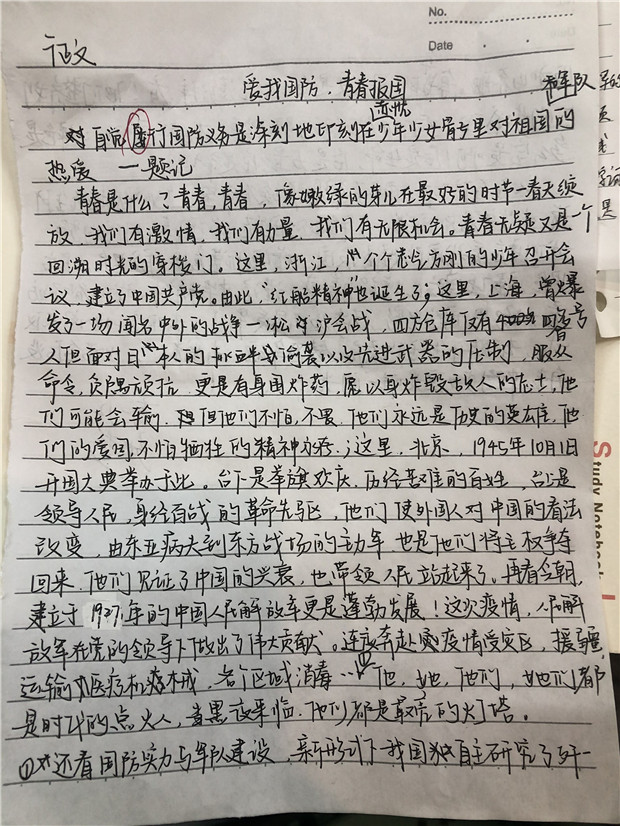 No.
Date
征文
爱我国防，青春报国
和军队
对自觉履行国防义务是深刻地印刻在少年少女骨子里对祖国的
热爱 一题记
青春是什么？青春，青春，像嫩绿的芽儿在最好的时节一春天绽
放，我们有激情，我们有力量，我们有无限机会。青春无疑又是一个
回溯时光的穿梭门。这里，浙江，个个意气方刚的少年召开会
议，建立了中国共产党。由此，"红船精神"也诞生了；这里，上海，曾爆
发了一场闻名中外的战争一淞沪会战，四方仓库仅有四百号
人但面对日本人的偷袭以及先进武器的压制，服从
命令，负隅顽抗，更是有身围炸药，愿以身炸毁敌人的战士，他
们可能会输，但他们不怕，不畏，他们永远是历史的英雄，他
们的爱国，不怕牺牲的精神；这里，北京，1945年10月1日
开国大典举办于此。台下是举旗欢庆，历经苦难的百姓，台上是
领导人民，身经百战的革命先驱，他们使外国人对中国的看法
改变，由东亚病夫到东方战场的主力军，也是他们将主权争夺
回来，他们见证了中国的兴衰，也带领人民站起来了。再看今朝，
建立于1927年的中国人民解放军更是蓬勃发展！这次疫情，人民解
放军在党的领导下做出了伟大贡献。连夜奔赴疫情受灾区，援疆，
运输医疗机械，各个区域消毒……他，她，他们，她们都
是时代的点火人，当黑夜来临，他们都是最亮的灯塔。
①还看国防实力与军队建设，新形式下我国独自主研究了歼一
Study Notebook